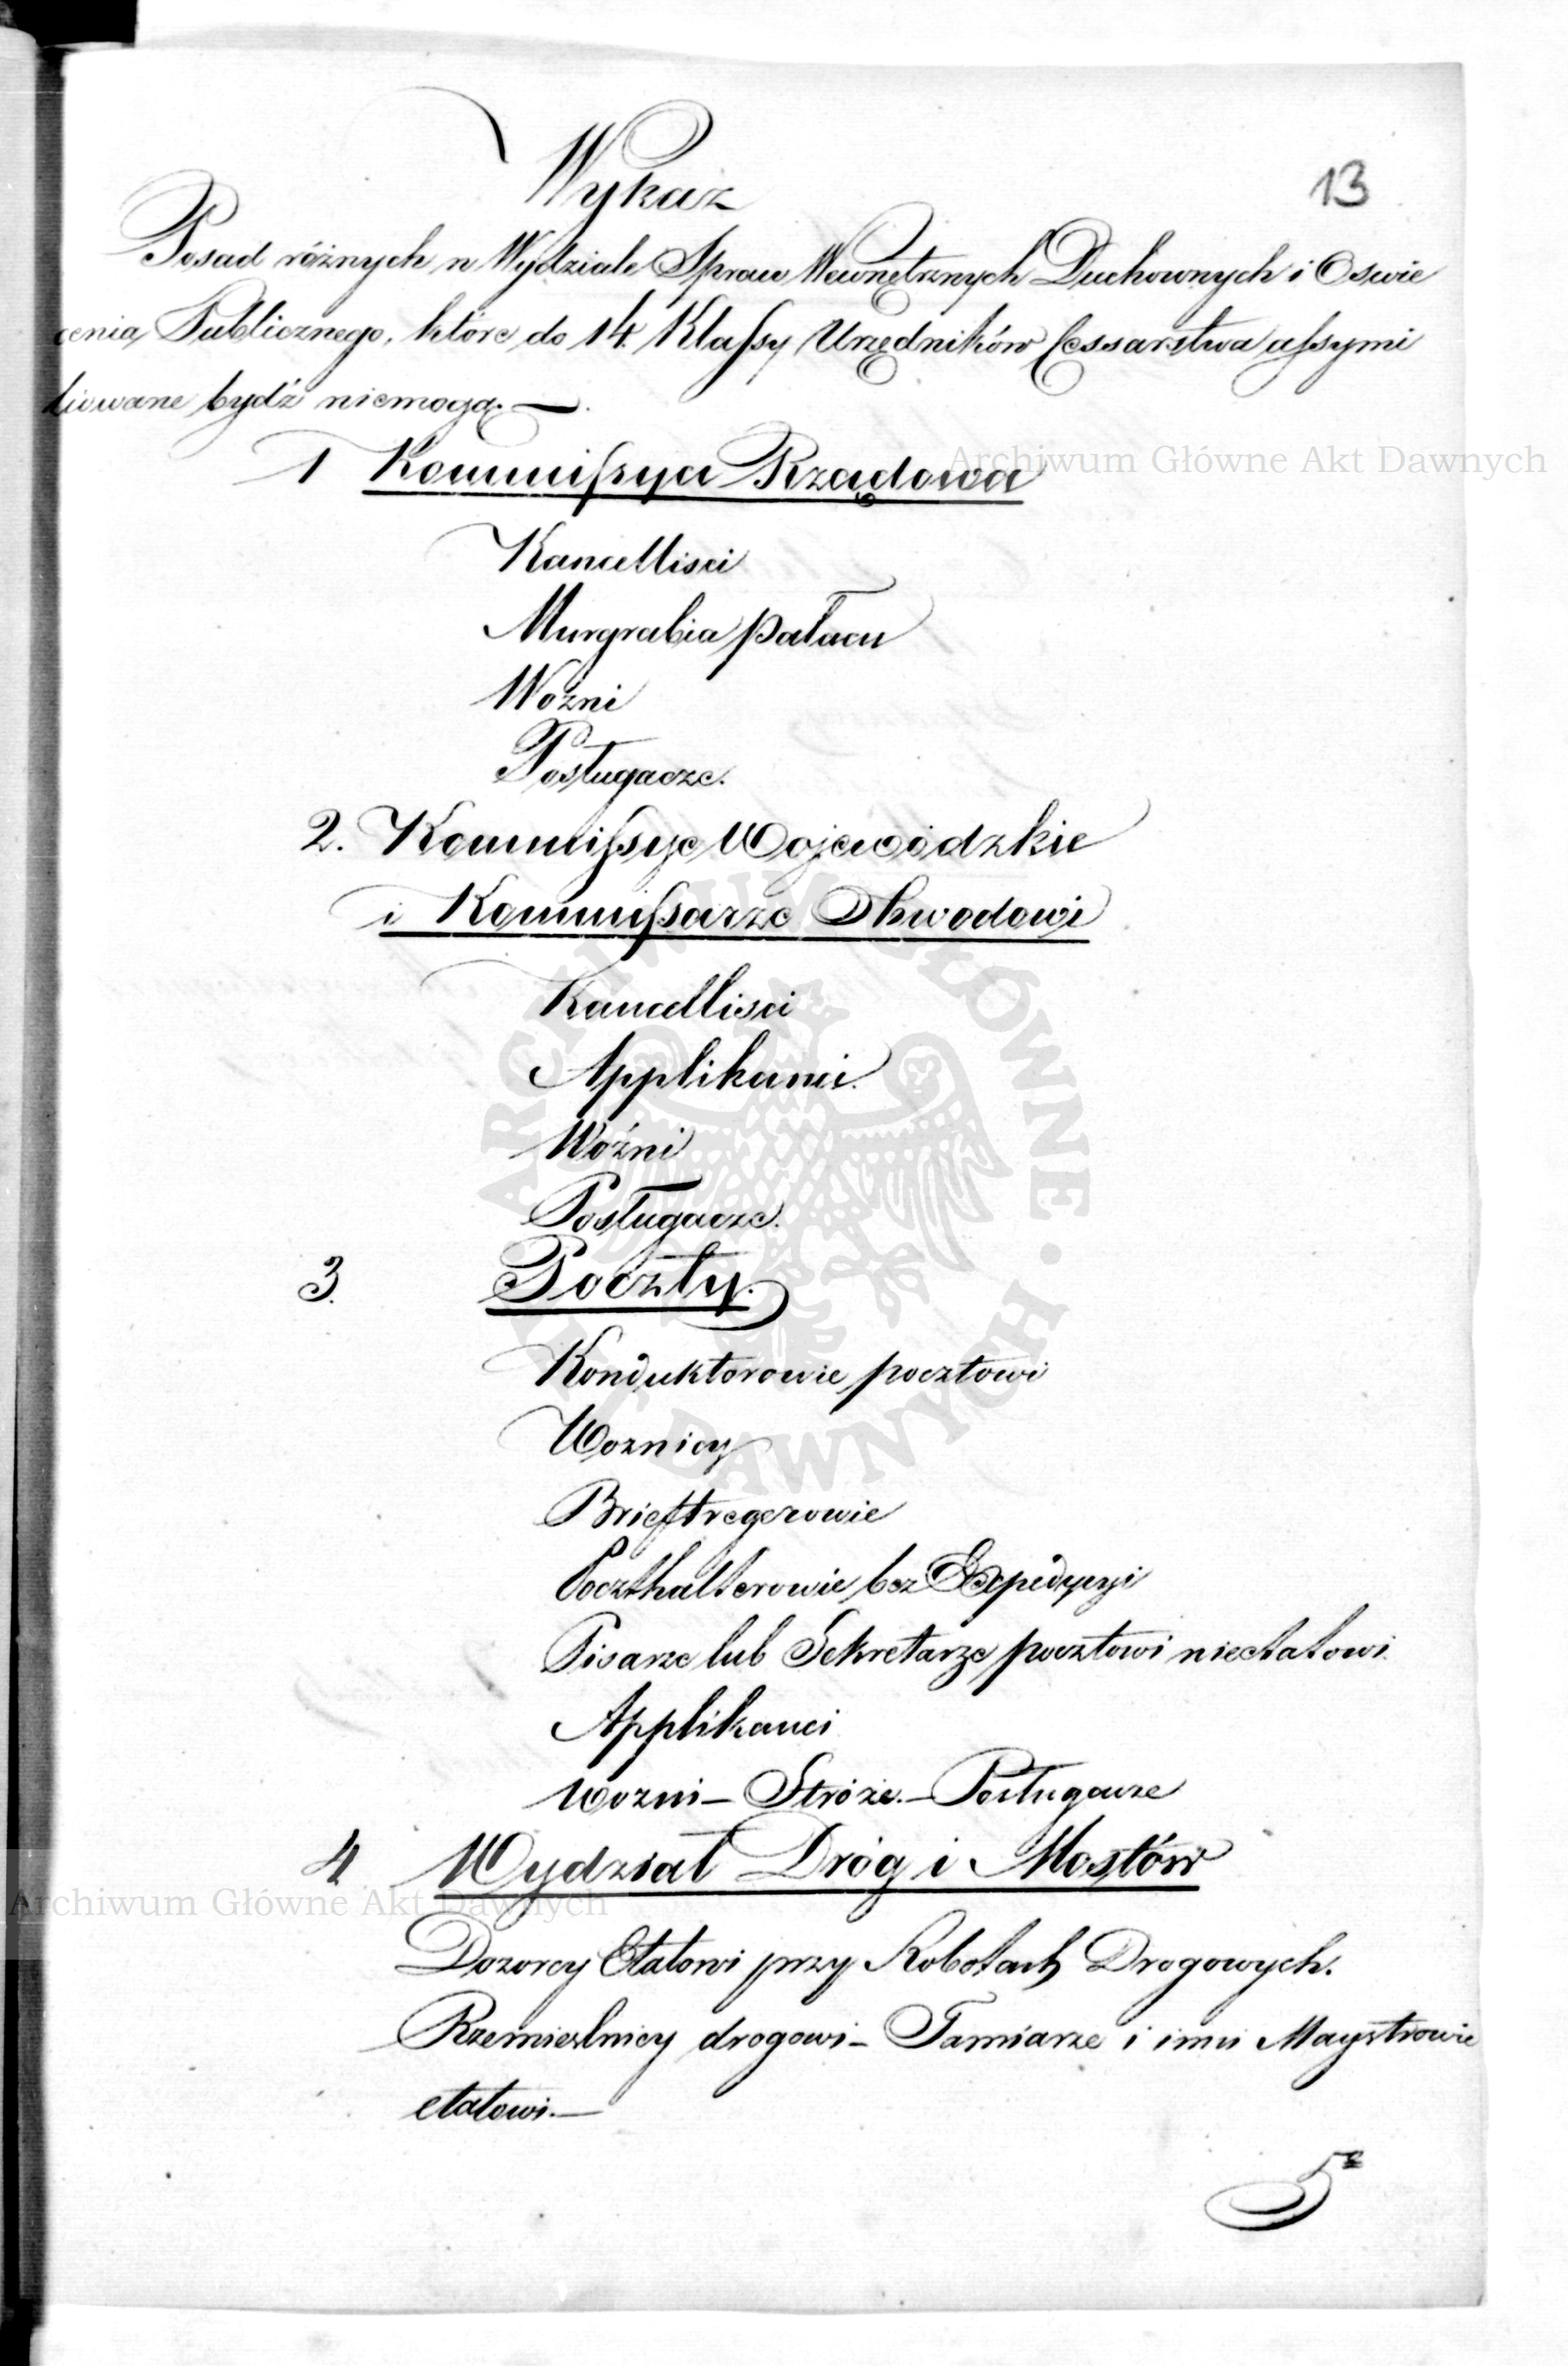 Wykaz
13
Posad różnych w Wydziale Spraw Wewnętrznych Duchownych i Oswie
cenia Publicznego, które do 14. Klassy Urzędników Cessarstwa assymi
liowane bydź niemogą. —
1 Kommissya Rządowa
Kancellisci
Murgrabia pałacu
Woźni
Posługacze.
2. Kommissye Wojewódzkie
i Kommissarze Obwodowi
Kancellisci
Applikanci.
Woźni
Posługacze.
3. Poczty.
Konduktorowie pocztowi
Woznicy
Brieftregerowie
Poczthalterowie bez Expedycyi
Pisarze lub Sekretarze pocztowi nieetatowi.
Applikanci
Wozni – Stróże. – Posługacze
4 Wydział Dróg i Mostów
Dozorcy Etatowi przy Robotach Drogowych.
Rzemieslnicy drogowi – Tamiarze i inni Maystrowie
etatowi. —
5
Archiwum Główne Akt Dawnych
Archiwum Główne Akt Dawnych
ARCHIWUM GŁÓWNE AKT DAWNYCH